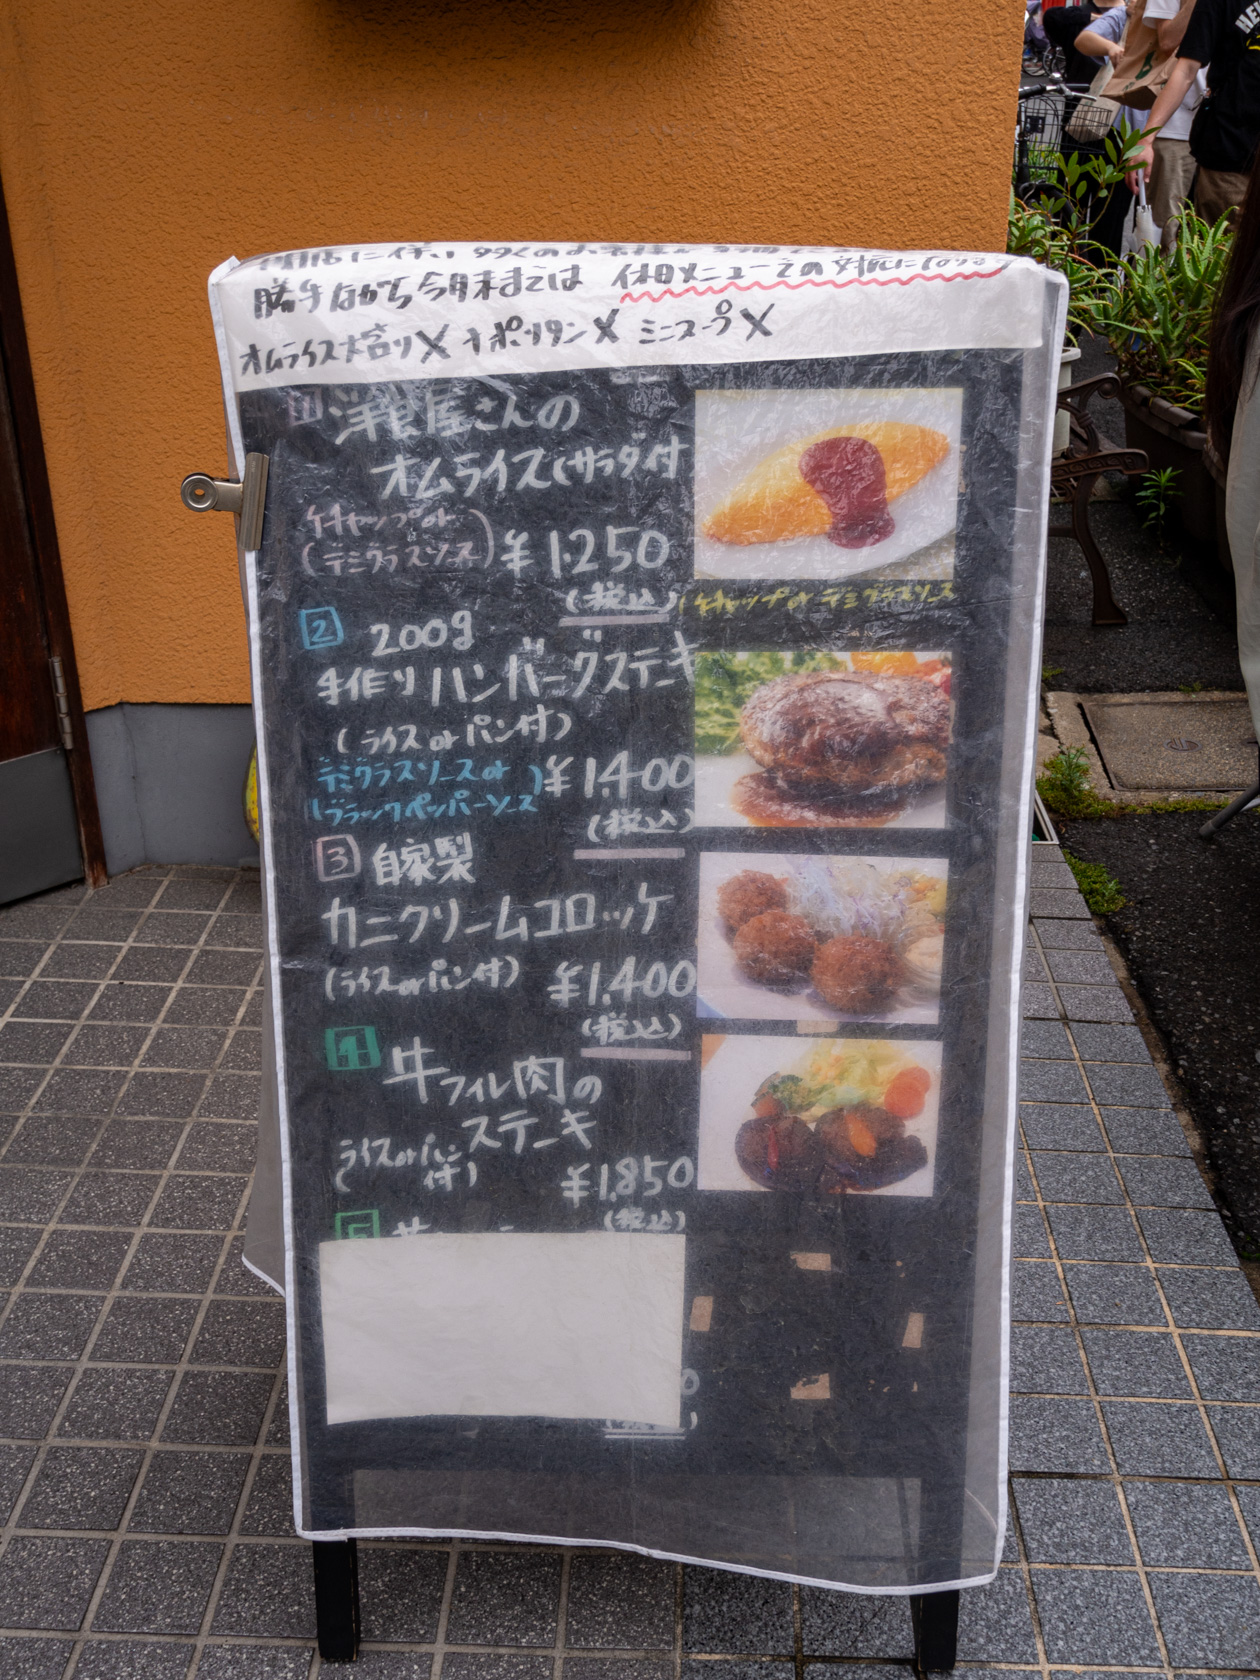 勝手ながら今月末までは 休日メニューでの対応になります
オムライス大盛り✕ ナポリタン✕ ミニスープ✕
1 洋食屋さんの
オムライス(サラダ付
ケチャップor
(デミグラスソース) ¥1.250
(税込)
(ケチャップorデミグラスソース
2 200g
手作りハンバーグステーキ
(ライスorパン付)
デミグラスソースor
(ブラックペッパーソース) ¥1.400
(税込)
3 自家製
カニクリームコロッケ
(ライスorパン付) ¥1.400
(税込)
4 牛フィレ肉の
ステーキ
(ライスorパン付) ¥1.850
(税込)
5